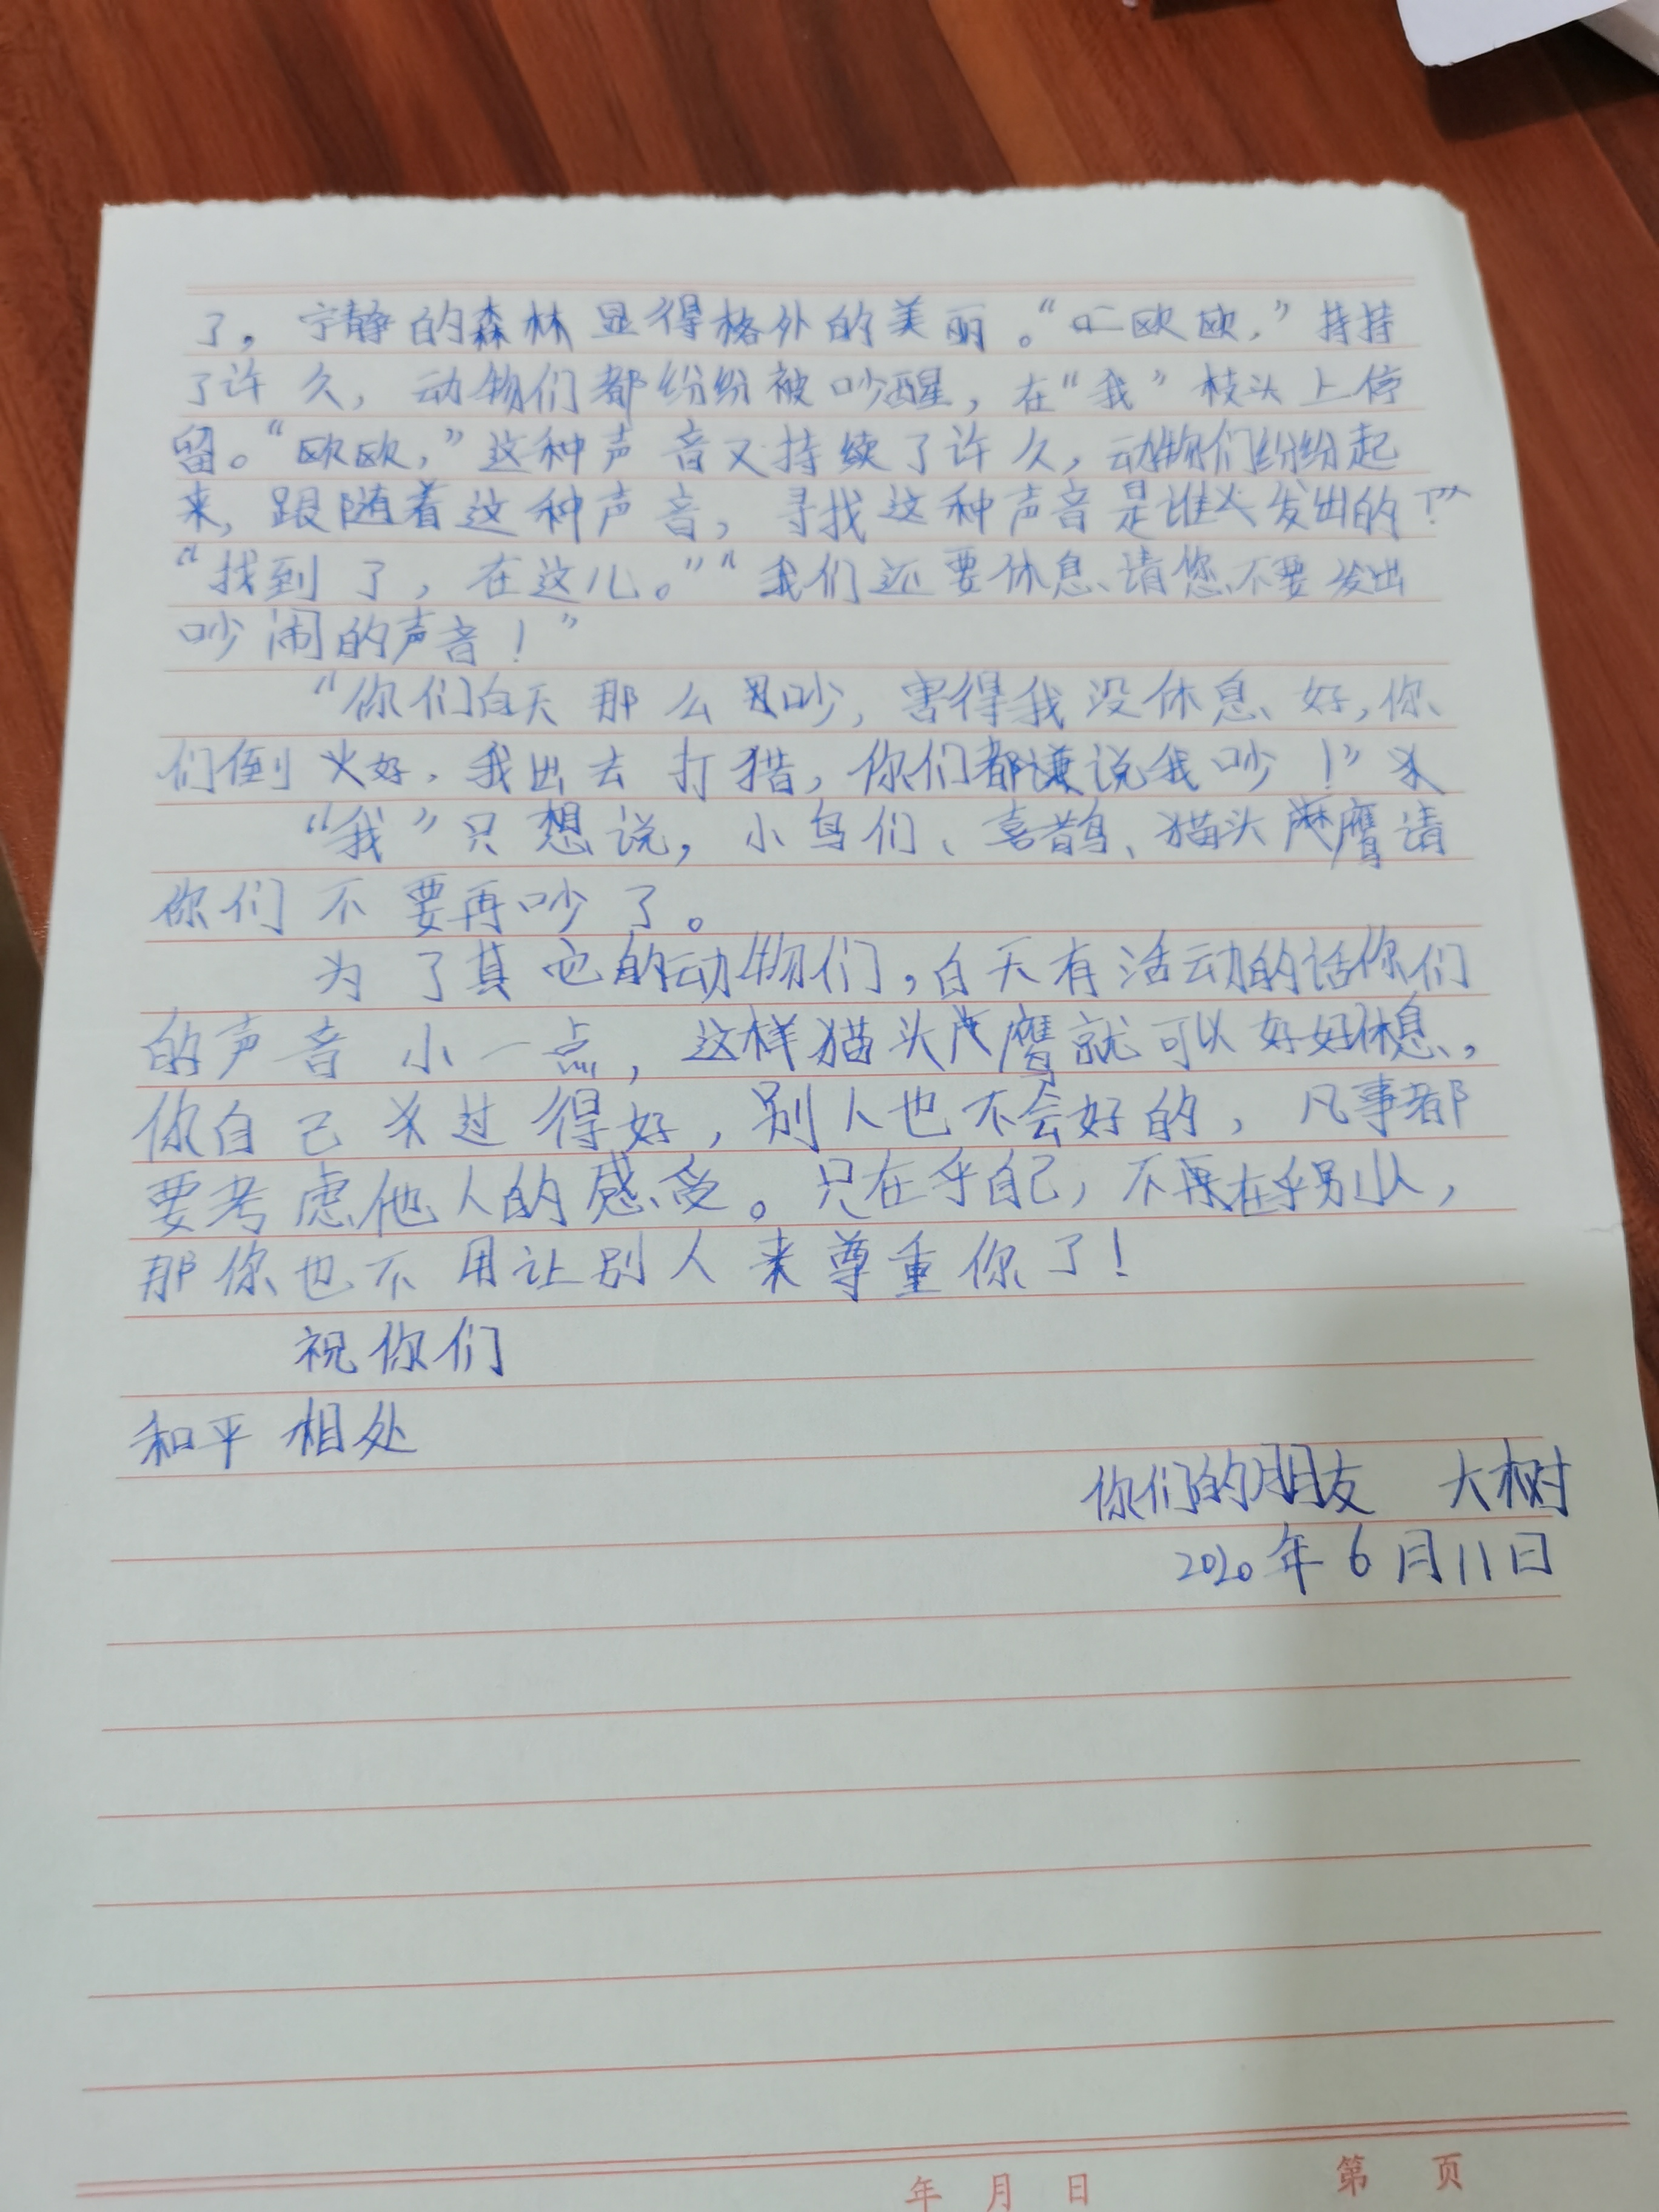 了，宁静的森林显得格外的美丽。“欧欧，”持持
了许久，动物们都纷纷被吵醒，在“我”枝头上停
留。“欧欧，”这种声音又持续了许久，动物们纷纷起
来，跟随着这种声音，寻找这种声音是谁发出的？”
“找到了，在这儿。”“我们还要休息、请您不要发出
吵闹的声音！”
“你们白天那么吵，害得我没休息好，你
们倒好，我出去打猎，你们都谦说我吵！”
“我”只想说，小鸟们、喜鹊、猫头鹰请
你们不要再吵了。
为了其它的动物们，白天有活动的话你们
的声音小一点，这样猫头鹰就可以好好休息，
你自己过得好，别人也不会好的，凡事都
要考虑他人的感受。只在乎自己，不再在乎别人，
那你也不用让别人来尊重你了！
祝你们
和平相处
你们的朋友 大树
2020年6月11日
年 月 日 第 页